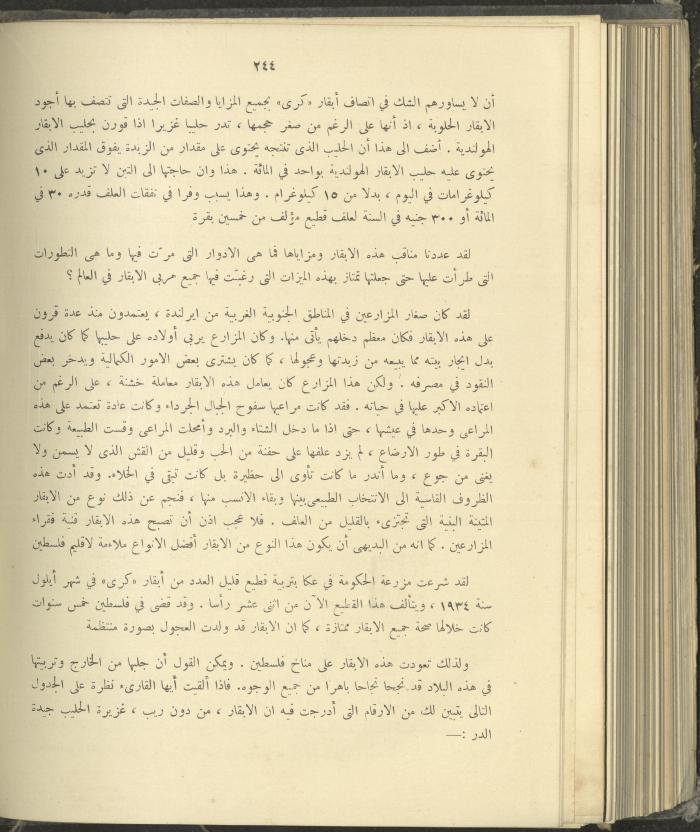 ٢٤٤
أن لا يساورهم الشك في اتصاف أبقار «كرى» بجميع المزايا والصفات الجيدة التى تتصف بها أجود
الابقار الحلوبة ، اذ أنها على الرغم من صغر حجمها ، تدر حليبا غزيرا اذا قورن بحليب الابقار
الهولندية . أضف الى هذا أن الحليب الذى تنتجه يحتوى على مقدار من الزبدة يفوق المقدار الذى
يحتوى عليه حليب الابقار الهولندية بواحد في المائة . هذا وان حاجتها الى التبن لا تزيد على ١٠
كيلوغرامات في اليوم ، بدلا من ١٥ كيلوغرام . وهذا يسبب وفرا في نفقات العلف قدره ٣٠ في
المائة أو ٣٠٠ جنيه في السنة لعلف قطيع مؤلف من خمسين بقرة
لقد عددنا مناقب هذه الابقار ومزاياها فما هى الادوار التى مرّت فيها وما هى التطورات
التى طرأت عليها حتى جعلتها تمتاز بهذه الميزات التى رغبّت فيها جميع مربى الابقار في العالم ؟
لقد كان صغار المزارعين في المناطق الجنوبية الغربية من ايرلندة ، يعتمدون منذ عدة قرون
على هذه الابقار فكان معظم دخلهم يأتى منها. وكان المزارع يربى أولاده على حليبها كما كان يدفع
بدل ايجار بيته مما يبيعه من زبدتها وعجولها ، كما كان يشترى بعض الامور الكمالية ويدخر بعض
النقود في مصرفه . ولكن هذا المزارع كان يعامل هذه الابقار معاملة خشنة ، على الرغم من
اعتماده الاكبر عليها في حياته . فقد كانت مراعيها سفوح الجبال الجرداء وكانت عادة تعتمد على هذه
المراعى وحدها في عيشها ، حتى اذا ما دخل الشتاء والبرد وأمحلت المراعى وقست الطبيعة وكانت
البقرة في طور الارضاع ، لم يزد علفها على حفنة من الحب وقليل من القش الذى لا يسمن ولا
يغنى من جوع ، وما أندر ما كانت تأوى الى حظيرة بل كانت تبقى في الخلاء. وقد أدت هذه
الظروف القاسية الى الانتخاب الطبيعى بينها وبقاء الانسب منها ، فنجم عن ذلك نوع من الابقار
المتينة البنية التى تجتزىء بالقليل من العلف . فلا عجب اذن أن تصبح هذه الابقار قنية فقراء
المزارعين . كما انه من البديهى أن يكون هذا النوع من الابقار أفضل الانواع ملاءمة لاقليم فلسطين
لقد شرعت مزرعة الحكومة في عكا بتربية قطيع قليل العدد من أبقار «كرى» في شهر أيلول
سنة ١٩٣٤ ، ويتألف هذا القطيع الآن من اثنى عشر رأسا . وقد قضى في فلسطين خمس سنوات
كانت خلالها صحة جميع الابقار ممتازة ، كما ان الابقار قد ولدت العجول بصورة منتظمة
ولذلك تعودت هذه الابقار على مناخ فلسطين . ويمكن القول أن جلبها من الخارج وتربيتها
في هذه البلاد قد نجحا نجاحا باهرا من جميع الوجوه. فاذا ألقيت أيها القارىء نظرة على الجدول
التالى يتبين لك من الارقام التى أدرجت فيه ان الابقار ، من دون ريب ، غزيرة الحليب جيدة
الدر :—